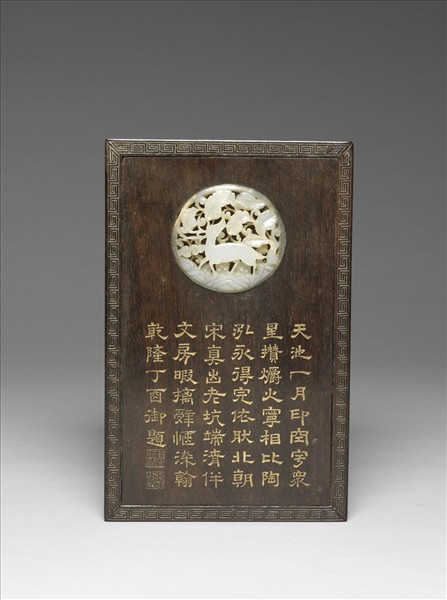 天池一月印宇眾
星攢爝火寧相比陶
泓永得完依耿北朝
宋真老坑端濟佯
文房暇摛辭愜染翰
乾隆丁酉御題